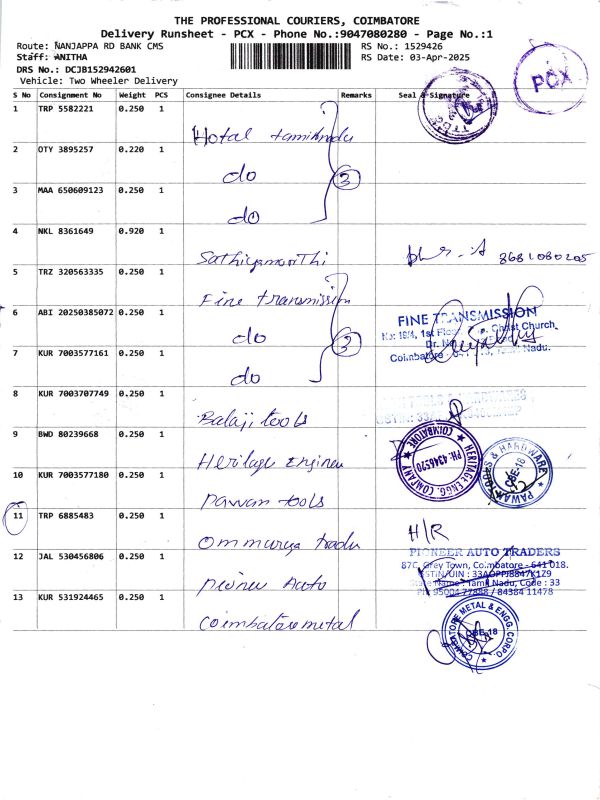 THE PROFESSIONAL COURIERS, COIMBATORE
Delivery Runsheet - PCX - Phone No.:9047080280 - Page No.:1
Route: NANJAPPA RD BANK CMS
RS No.: 1529426
Staff: ANITHA
RS Date: 03-Apr-2025
DRS No.: DCJB152942601
Vehicle: Two Wheeler Delivery
PCX
S No Consignment No Weight PCS Consignee Details Remarks Seal & Signature
1 TRP 5582221 0.250 1 Hotal tamilnadu
2 OTY 3895257 0.220 1 do
3
3 MAA 650609123 0.250 1 do
4 NKL 8361649 0.920 1 Sathiyamoorthi 8681080205
5 TRZ 320563335 0.250 1 Fine transmission
6 ABI 20250385072 0.250 1 do
3
7 KUR 7003577161 0.250 1 do
FINE TRANSMISSION
No: 19/4, 1st Christ Church,
Dr.
Coimbatore Tamil Nadu.
8 KUR 7003707749 0.250 1 Balaji tools
9 BWD 80239668 0.250 1 Heritage Engineer
HERITAGE ENGG. COMPANY COIMBATORE PH: 4346520
10 KUR 7003577180 0.250 1 Pawan tools
PAWAN TOOLS & HARDWARE CBE-18
11 TRP 6885483 0.250 1 Ommurga tradu H/R
12 JAL 530456806 0.250 1 pioneer Auto
PIONEER AUTO TRADERS
87C, Grey Town, Coimbatore - 641 018.
GSTIN/UIN : 33AOPPJ8847K1Z9
State Name : Tamil Nadu, Code : 33
PH 95004 77888 / 84384 11478
13 KUR 531924465 0.250 1 Coimbatore metal
COIMBATORE METAL & ENGG. CORPO. CBE-18